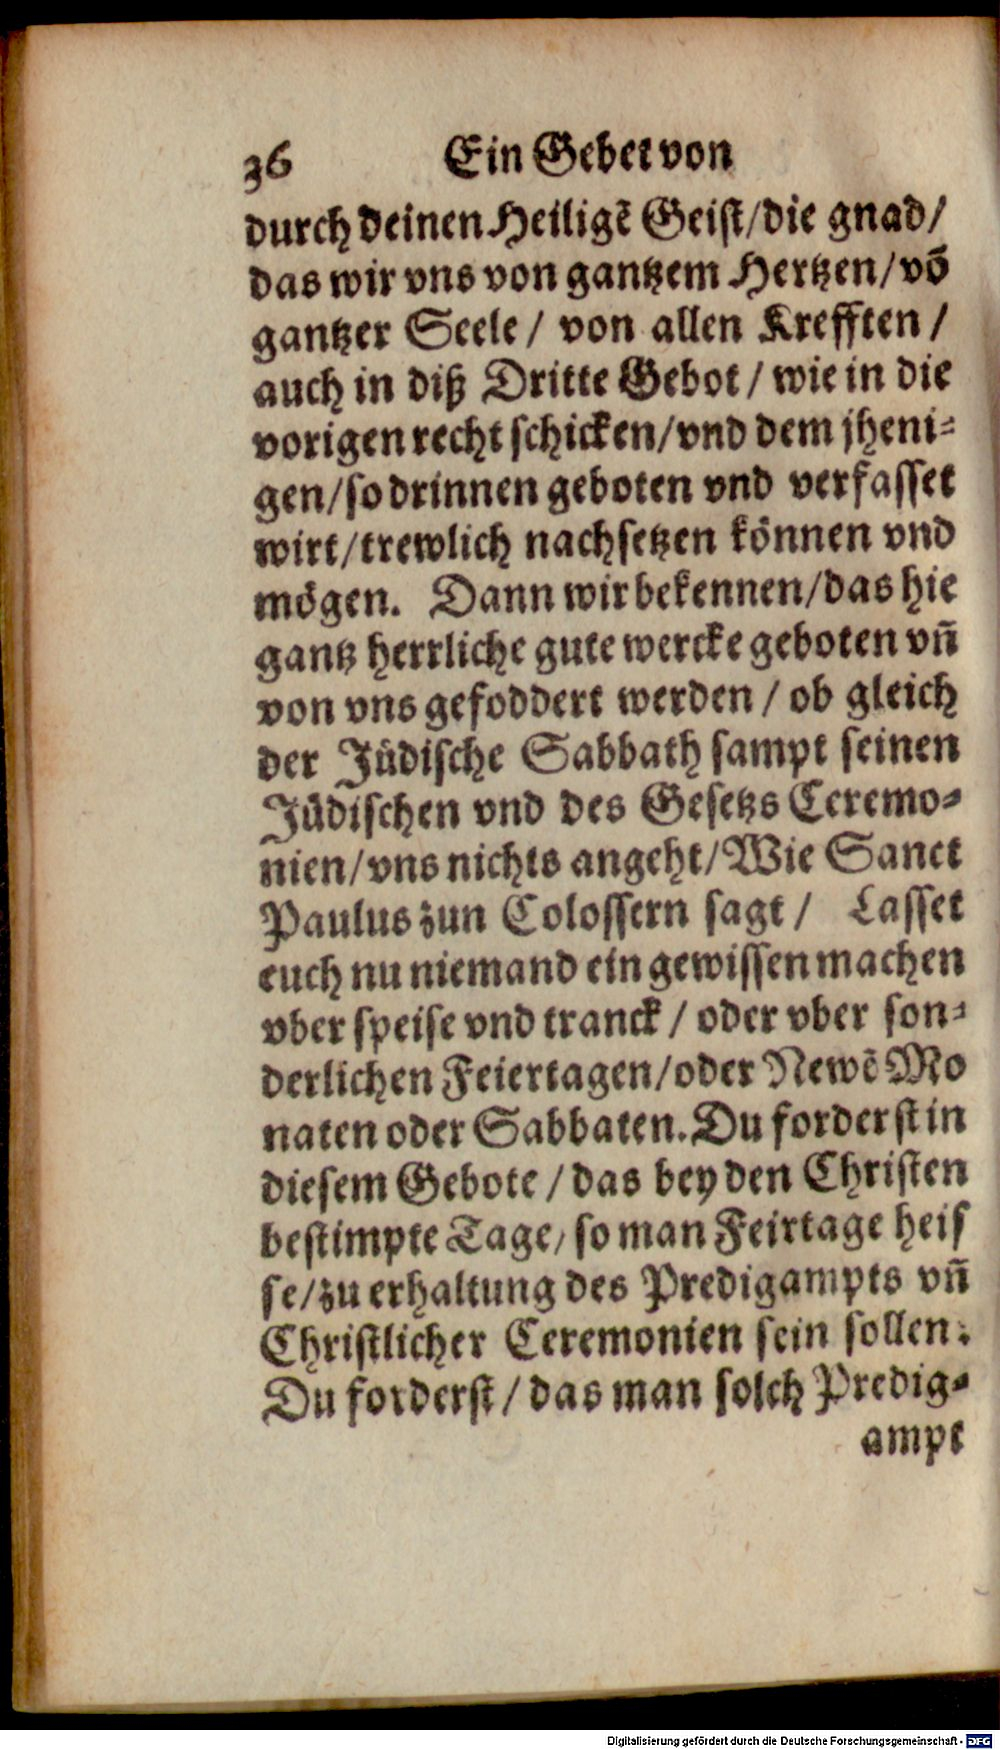 36 Ein Gebet von
durch deinen Heiligẽ Geist/die gnad/
das wir vns von gantzem Hertzen/võ
gantzer Seele/ von allen Krefften/
auch in diß Dritte Gebot/wie in die
vorigen recht schicken/vnd dem jheni-
gen/so drinnen geboten vnd verfasset
wirt/trewlich nachsetzen können vnd
mögen. Dann wir bekennen/das hie
gantz herrliche gute wercke geboten vñ
von vns gefoddert werden/ob gleich
der Jüdische Sabbath sampt seinen
Jüdischen vnd des Gesetzs Ceremo-
nien/vns nichts angeht/Wie Sanct
Paulus zun Colossern sagt/ Lasset
euch nu niemand ein gewissen machen
vber speise vnd tranck/oder vber son-
derlichen Feiertagen/oder Newẽ Mo
naten oder Sabbaten. Du forderst in
diesem Gebote/das bey den Christen
bestimpte Tage/so man Feirtage heis
se/zu erhaltung des Predigampts vñ
Christlicher Ceremonien sein sollen.
Du forderst/das man solch Predig-
ampt
Digitalisierung gefördert durch die Deutsche Forschungsgemeinschaft - DFG